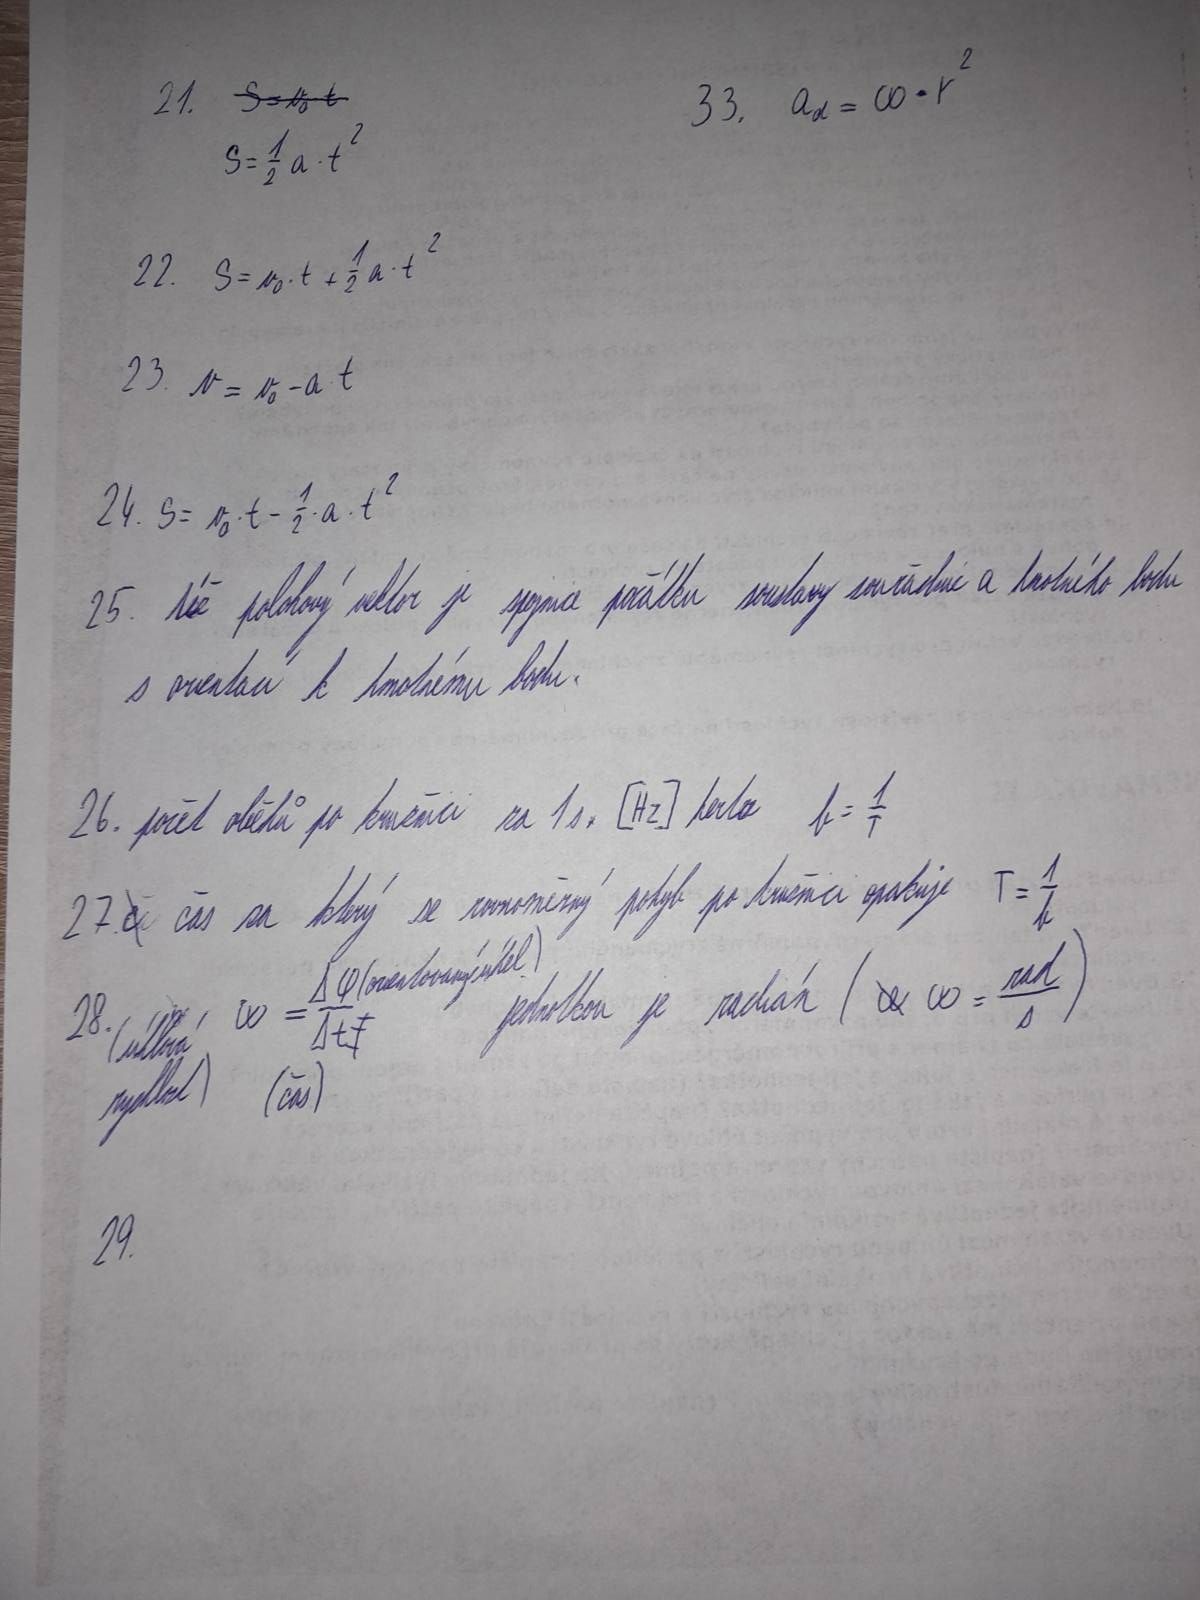 21. s = v₀ · t
s = 1/2 a · t²
22. s = v₀ · t + 1/2 a · t²
23. v = v₀ - a · t
24. s = v₀ · t - 1/2 · a · t²
25. polohový vektor je spojnice počátku soustavy souřadnic a hmotného bodu
s orientací k hmotnému bodu.
26. počet oběhů po kružnici za 1 s. [Hz] hertz f = 1/T
27. čas za který se rovnoměrný pohyb po kružnici opakuje T = 1/f
28. (úhlová rychlost) ω = Δφ (orientovaný úhel) / Δt (čas) jednotkou je radián ( ω = rad/s )
29.
33. a_d = ω · r²